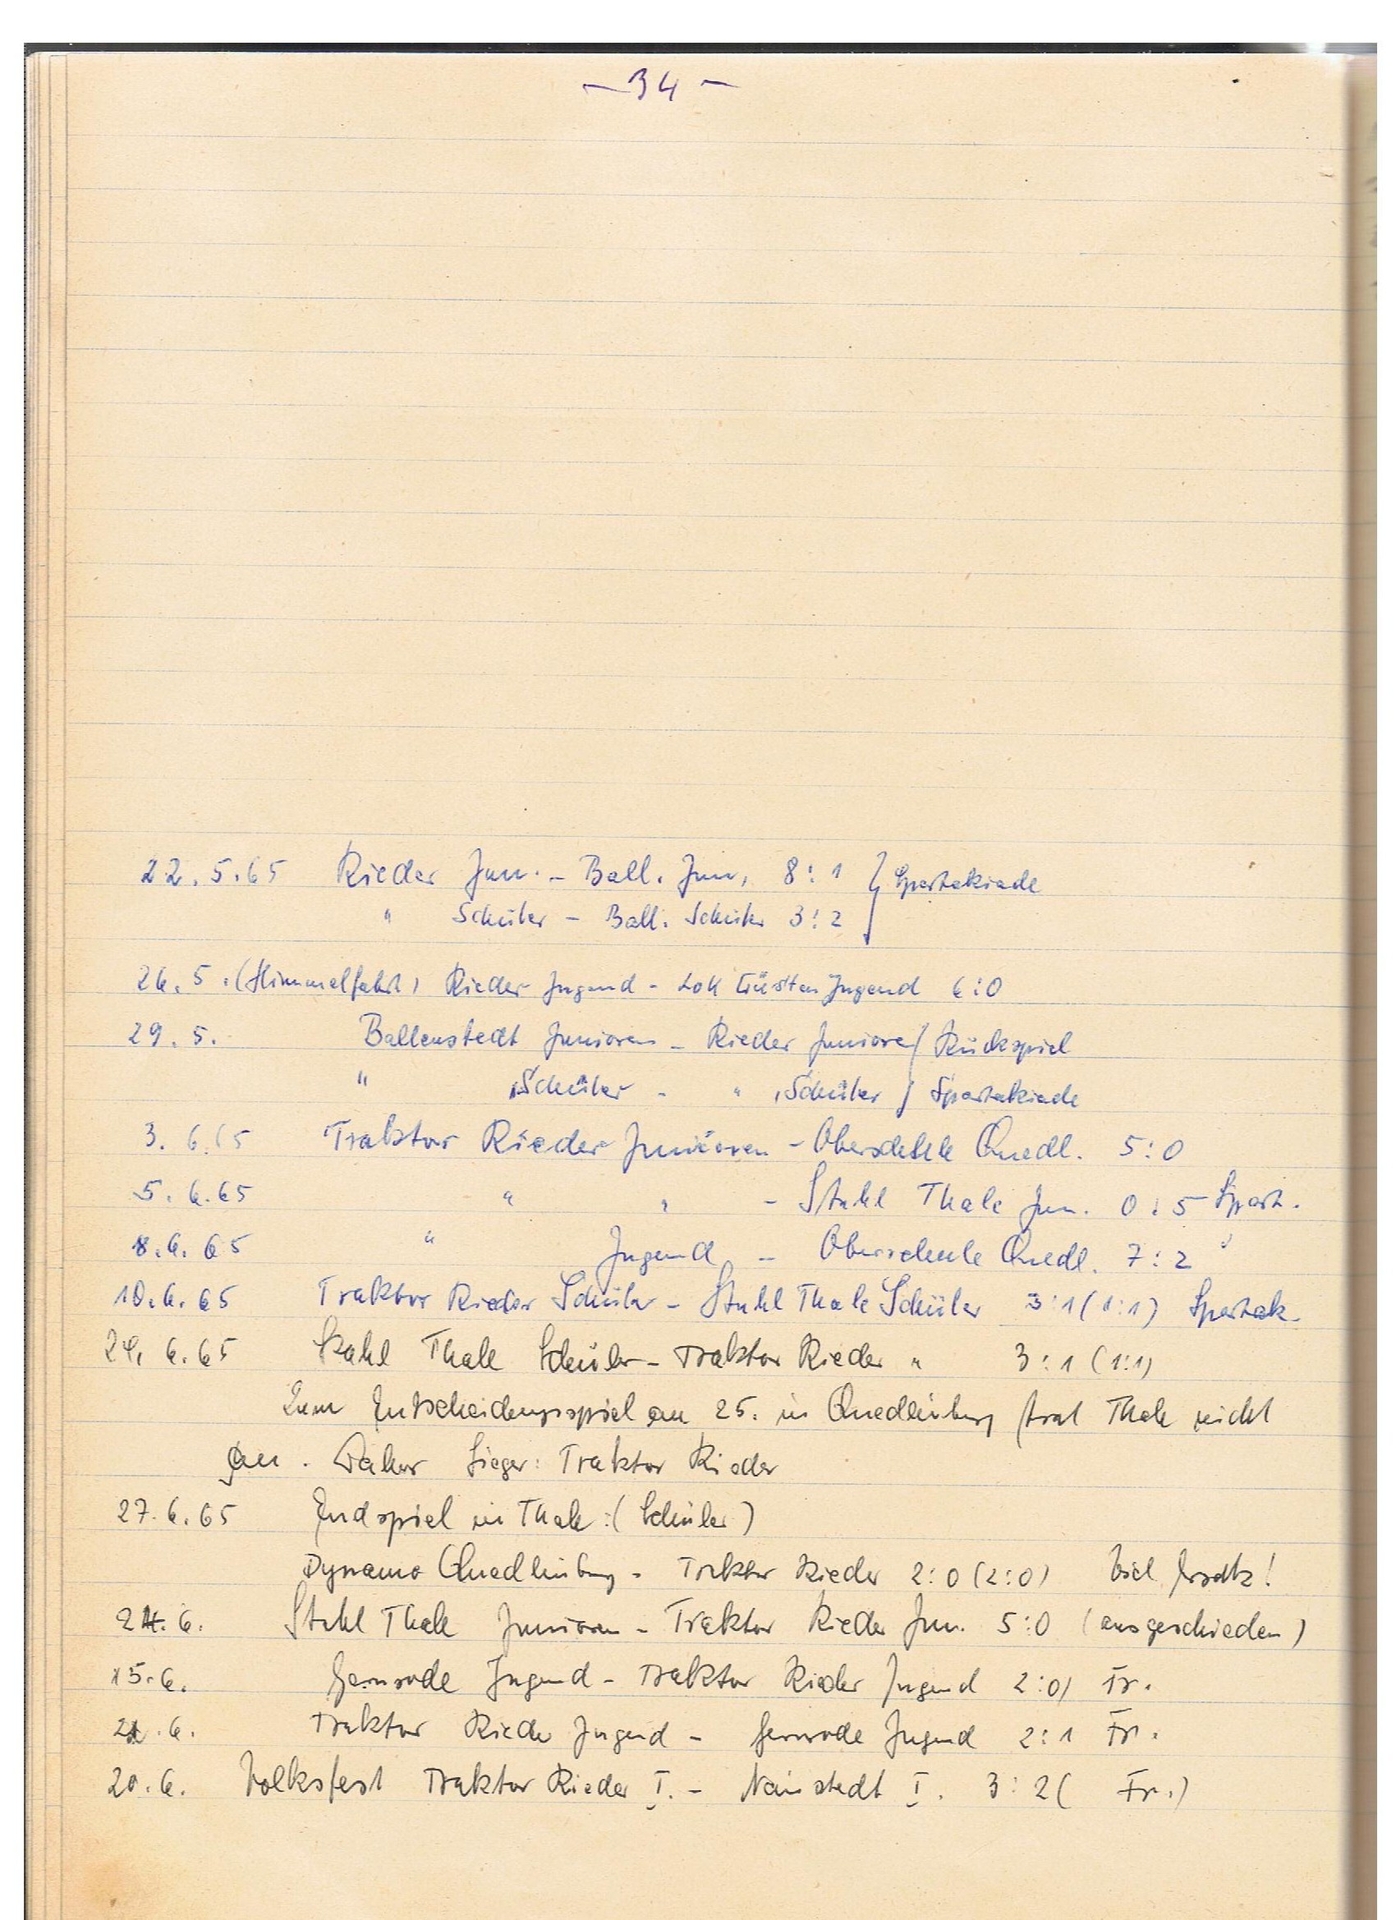 - 34 -
22.5.65 Rieder Jun. - Ball. Jun. 8:1 } Spartakiade
" Schüler - Ball. Schüler 3:2
26.5. (Himmelfahrt) Rieder Jugend - Lok Güsten Jugend 6:0
29.5. Ballenstedt Junioren - Rieder Junioren } Rückspiel
" Schüler - " Schüler } Spartakiade
3.6.65 Traktor Rieder Junioren - Oberschule Quedl. 5:0
5.6.65 " " - Stahl Thale Jun. 0:5 Spart.
8.6.65 " Jugend - Oberschule Quedl. 7:2 "
10.6.65 Traktor Rieder Schüler - Stahl Thale Schüler 3:1 (1:1) Spartak.
24.6.65 Stahl Thale Schüler - Traktor Rieder " 3:1 (1:1)
Zum Entscheidungsspiel am 25. in Quedlinburg trat Thale nicht
an. Daher Sieger: Traktor Rieder
27.6.65 Endspiel in Thale: (Schüler)
Dynamo Quedlinburg - Traktor Rieder 2:0 (2:0) Viel Ersatz!
24.6. Stahl Thale Junioren - Traktor Rieder Jun. 5:0 (ausgeschieden)
15.6. Gernrode Jugend - Traktor Rieder Jugend 2:0) Fr.
.6. Traktor Rieder Jugend - Gernrode Jugend 2:1 Fr.
20.6. Volksfest Traktor Rieder I. - Neinstedt I. 3:2 ( Fr.)